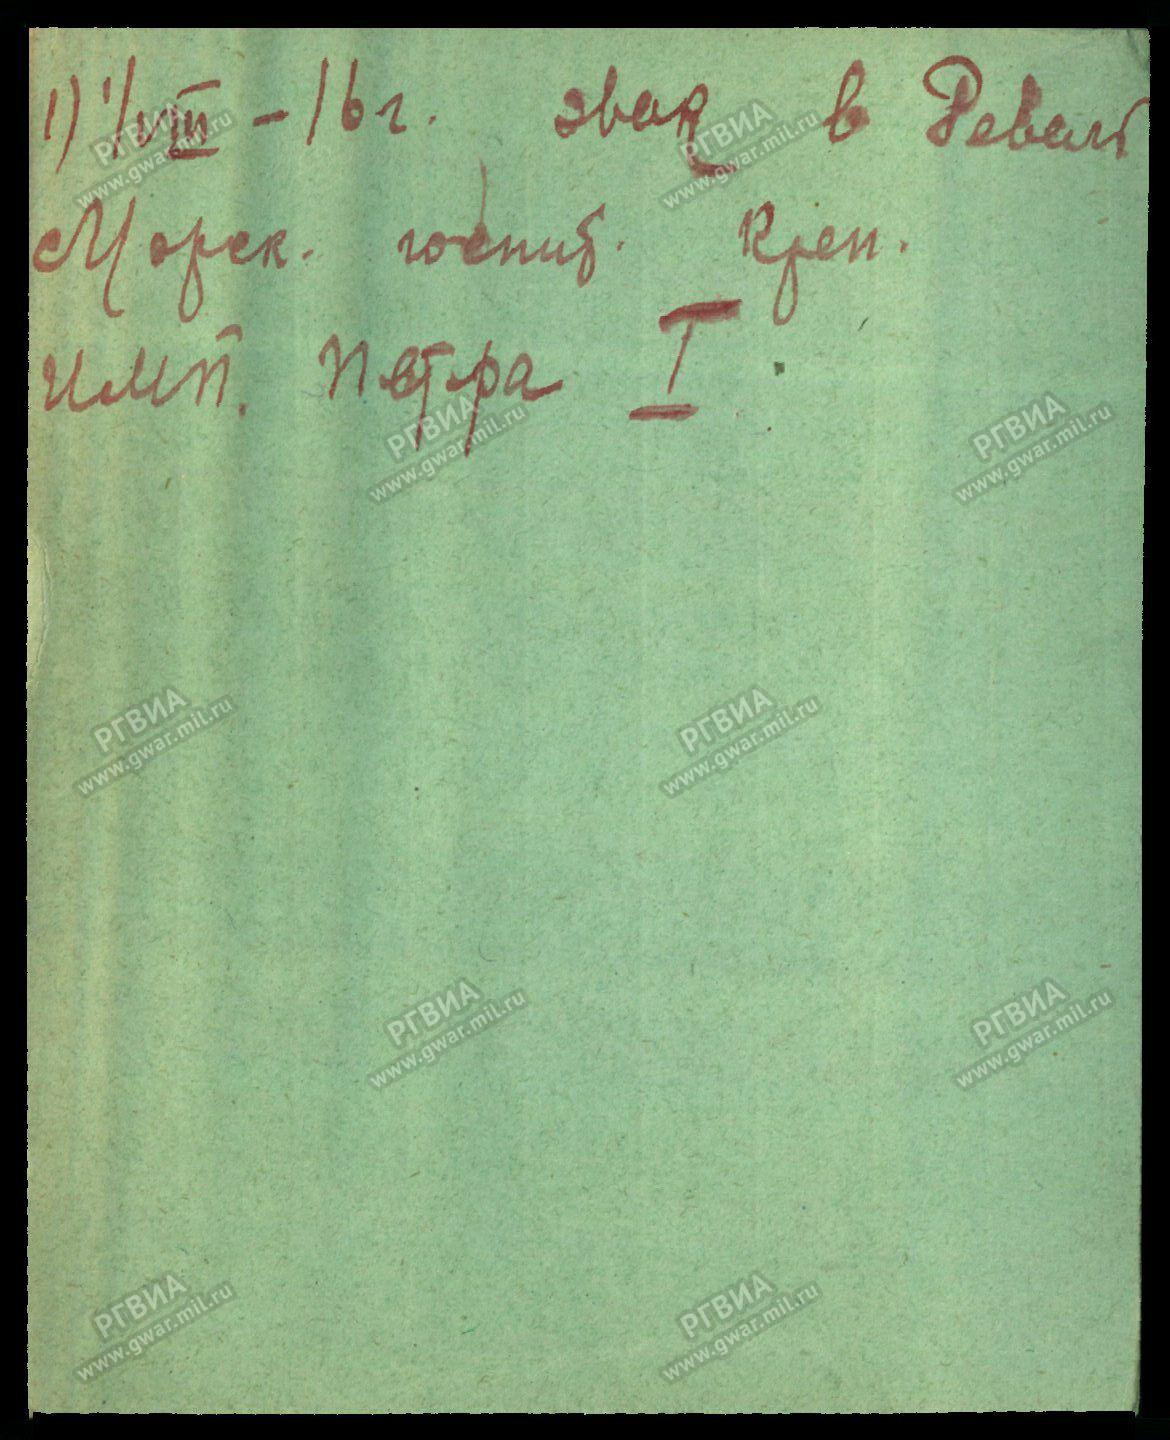 1) 1/VIII – 16 г. эвак в Ревел
Морск. госпит. Креп.
Имп. Петра I
РГВИА
www.gwar.mil.ru
РГВИА
www.gwar.mil.ru
РГВИА
www.gwar.mil.ru
РГВИА
www.gwar.mil.ru
РГВИА
www.gwar.mil.ru
РГВИА
www.gwar.mil.ru
РГВИА
www.gwar.mil.ru
РГВИА
www.gwar.mil.ru
РГВИА
www.gwar.mil.ru
РГВИА
www.gwar.mil.ru